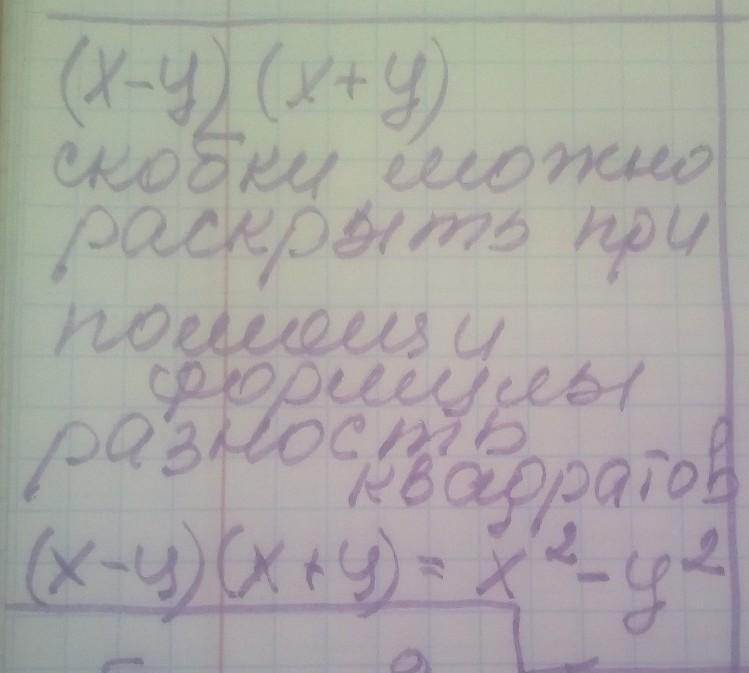 (x-y) (x+y)
скобки можно
раскрыть при
помощи
формулы
разность
квадратов
(x-y)(x+y) = x² - y²